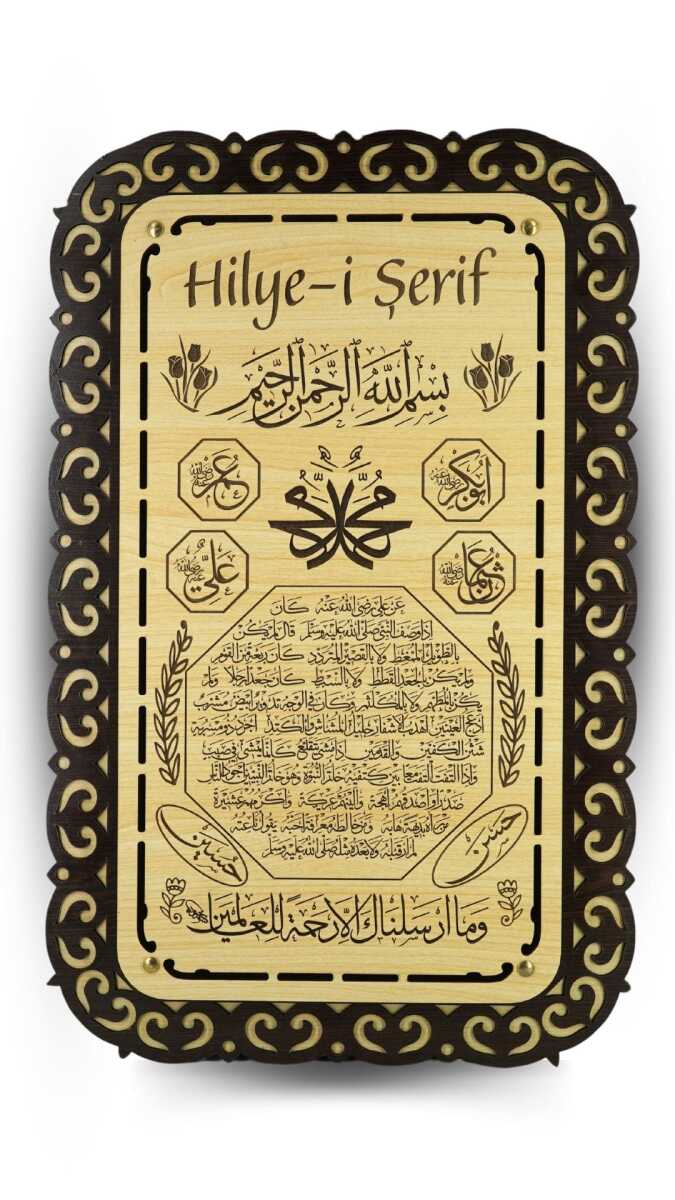 Hilye-i Şerif
بسم الله الرحمن الرحيم
ابو بكر رضي الله عنه
محمد
عمر رضي الله عنه
عثمان رضي الله عنه
علي رضي الله عنه
عن علي رضي الله عنه كان
اذا وصف النبي صلى الله عليه وسلم قال لم يكن
بالطويل الممغط ولا بالقصير المتردد كان ربعة من القوم
ولم يكن بالجعد القطط ولا بالسبط كان جعدا رجلا ولم
يكن بالمطهم ولا بالمكلثم وكان في الوجه تدوير ابيض مشرب
ادعج العينين اهدب الاشفار جليل المشاش والكتد اجرد ذو مسربة
شثن الكفين والقدمين اذا مشى يتقلع كانما يمشي في صبب
واذا التفت التفت معا بين كتفيه خاتم النبوة وهو خاتم النبيين اجود الناس
صدرا واصدقهم لهجة والينهم عريكة واكرمهم عشيرة
من رآه بديهة هابه ومن خالطه معرفة احبه يقول ناعته
لم ار قبله ولا بعده مثله صلى الله عليه وسلم
حسن
حسين
وما ارسلناك الا رحمة للعالمين